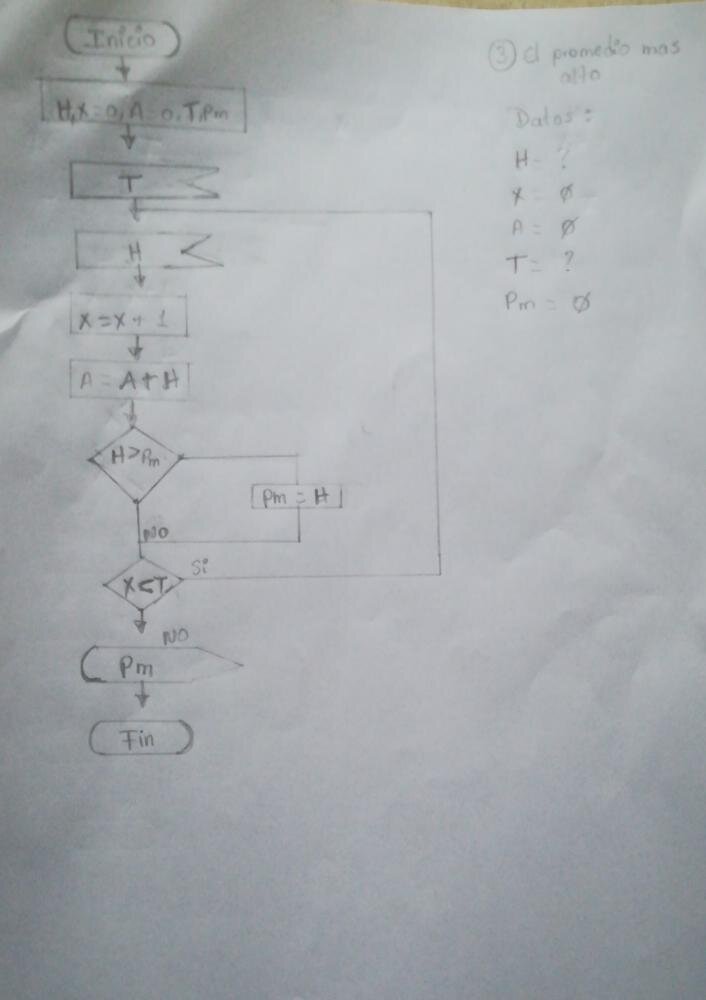 Inicio
H, X=0, A=0, T, Pm
T
H
X = X + 1
A = A + H
H>Pm
Pm = H
NO
X<T
Si
NO
Pm
Fin
③ el promedio mas
alto
Datos:
H = ?
X = Ø
A = Ø
T = ?
Pm = Ø